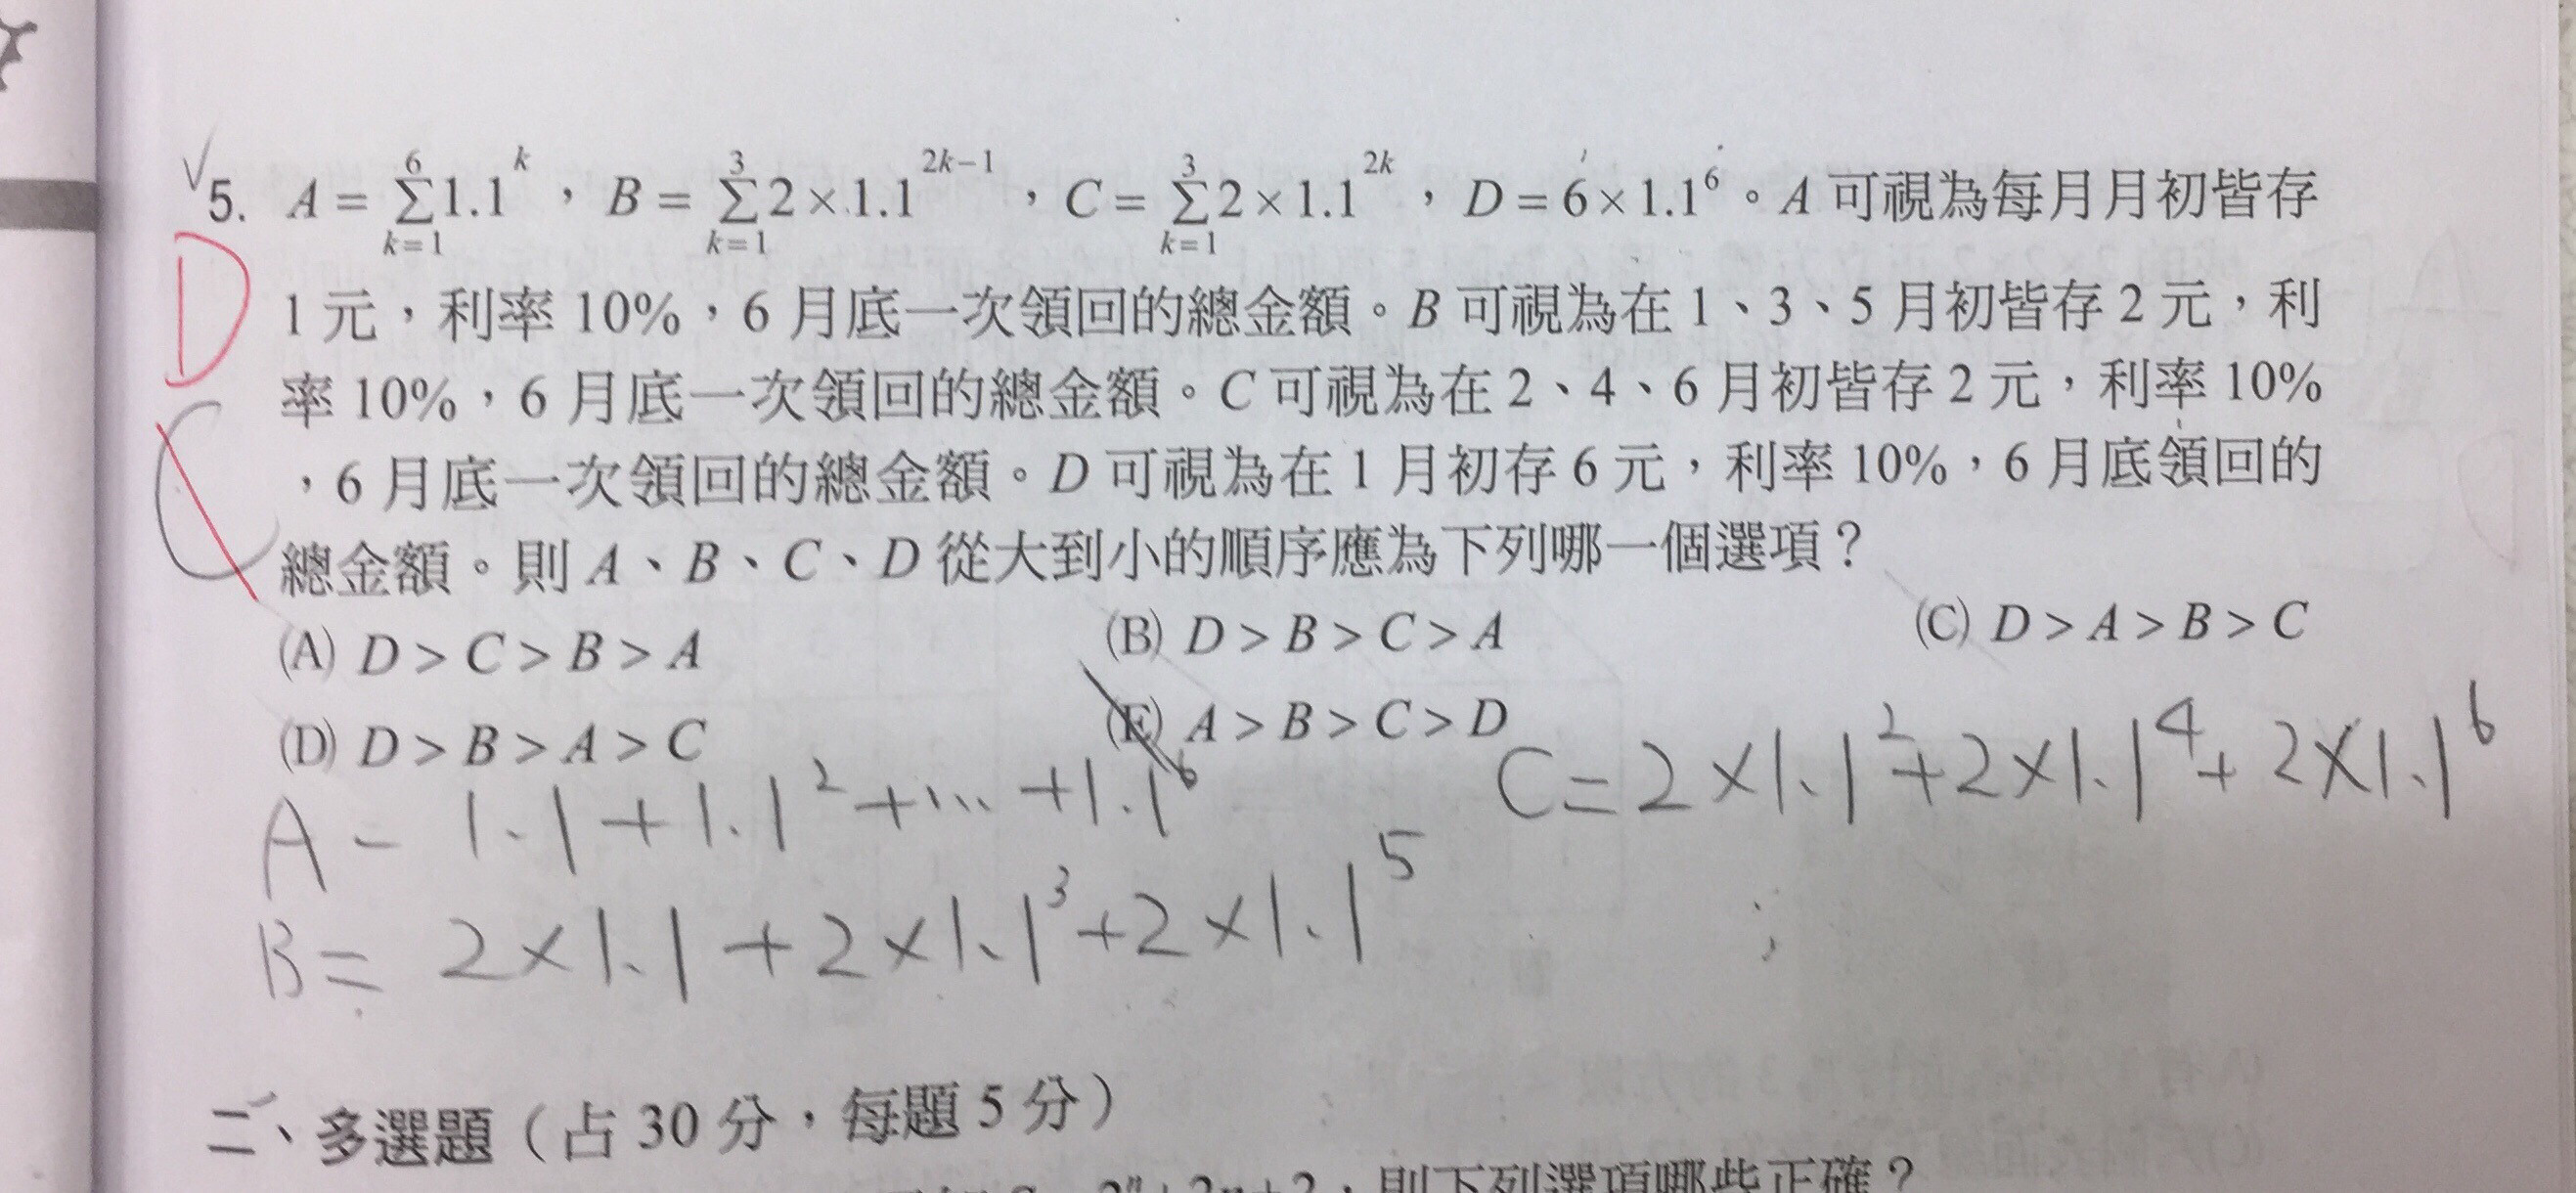 5. A = \sum_{k=1}^{6} 1.1^{k}，B = \sum_{k=1}^{3} 2×1.1^{2k-1}，C = \sum_{k=1}^{3} 2×1.1^{2k}，D = 6×1.1^{6}。A 可視為每月月初皆存
D
1 元，利率 10%，6 月底一次領回的總金額。B 可視為在 1、3、5 月初皆存 2 元，利
率 10%，6 月底一次領回的總金額。C 可視為在 2、4、6 月初皆存 2 元，利率 10%
C
，6 月底一次領回的總金額。D 可視為在 1 月初存 6 元，利率 10%，6 月底領回的
總金額。則 A、B、C、D 從大到小的順序應為下列哪一個選項？
(A) D > C > B > A (B) D > B > C > A (C) D > A > B > C
(D) D > B > A > C (E) A > B > C > D
A = 1.1 + 1.1^2 + ... + 1.1^6
C = 2×1.1^2 + 2×1.1^4 + 2×1.1^6
B = 2×1.1 + 2×1.1^3 + 2×1.1^5
二、多選題（占 30 分，每題 5 分）
則下列選項哪些正確？